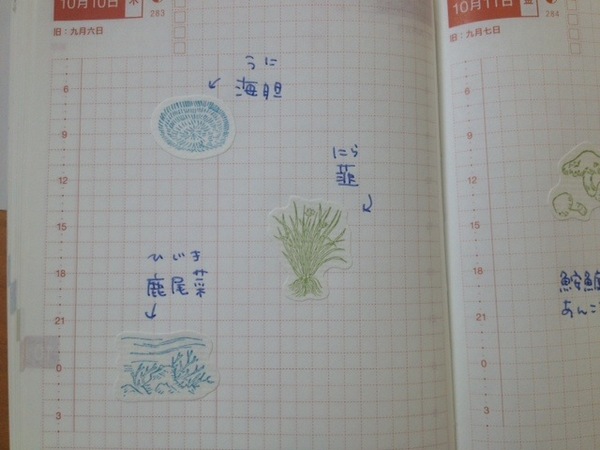 10月10日 木
283
旧:九月六日
うに
海胆
にら
韮
ひじき
鹿尾菜
6
9
12
15
18
21
0
3
10月11日 金
284
旧:九月七日
6
9
12
15
18
21
0
3
鮟鱇
あんこ